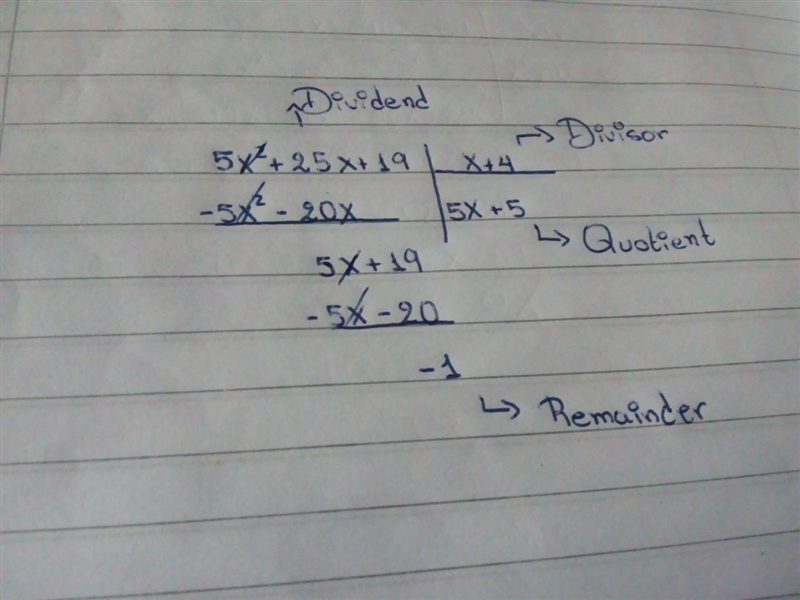 Dividend
5x² + 25x + 19 | x + 4 → Divisor
-5x² - 20x | 5x + 5
↳ Quotient
5x + 19
-5x - 20
-1
↳ Remainder